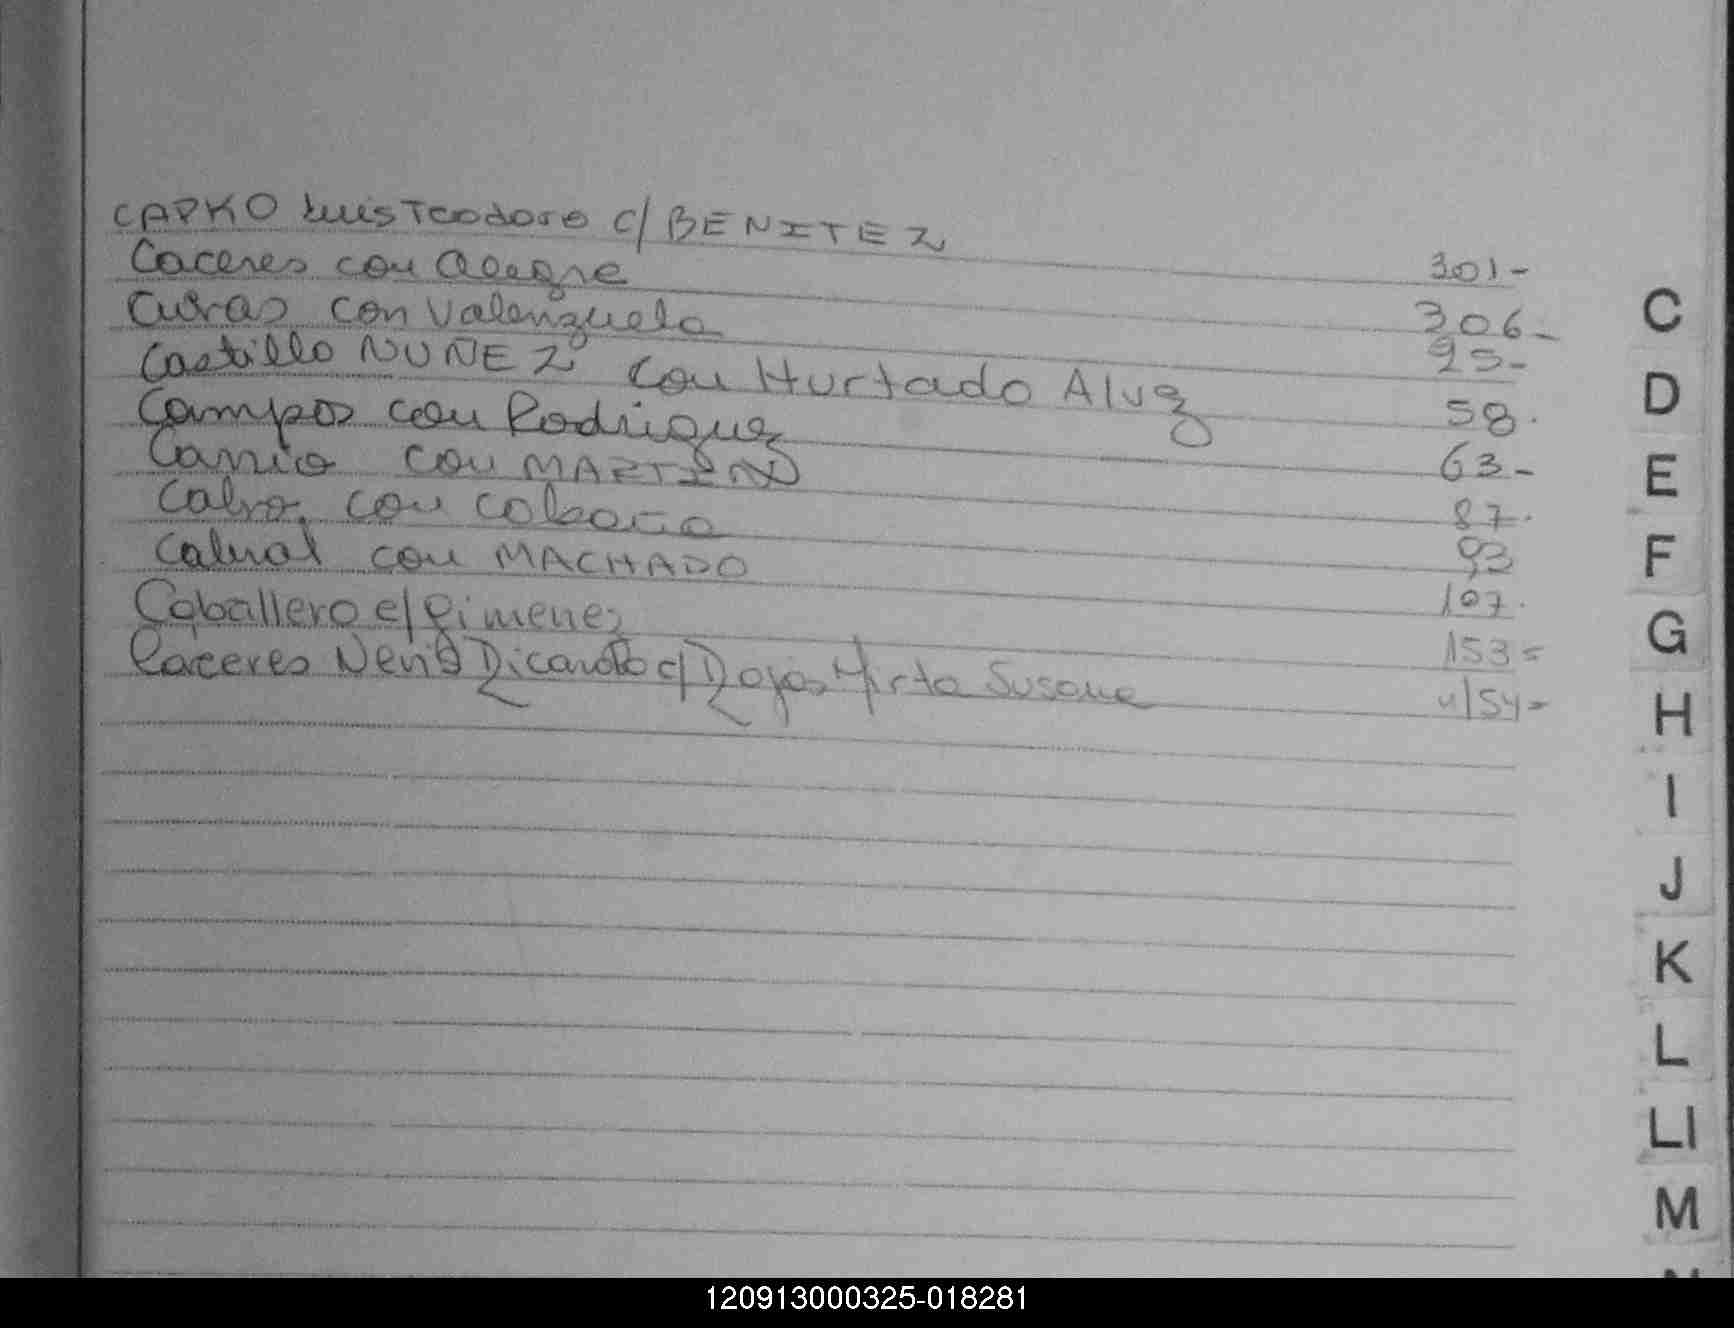 CAPKO Luis Teodoro c/ BENITEZ 301-
Caceres con Alegre 306-
Cubas con Valenzuela 95-
Castillo NUÑEZ con Hurtado Alvz 58.
Campos con Rodriguez 63-
Carrio con MARTINS 87.
Calvo con 93
Cabral con MACHADO 107.
Caballero c/ Gimenez 153=
Caceres Nenis Ricardo c/ Rojas Mirta Susana 154=
C
D
E
F
G
H
I
J
K
L
Ll
M
120913000325-018281